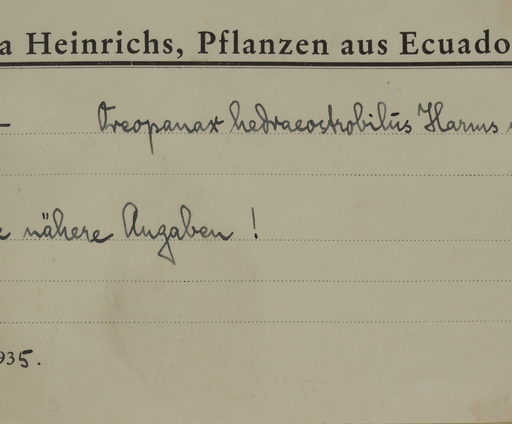 a Heinrichs, Pflanzen aus Ecuado
– Oreopanax hedraeostrobilus Harms
e nähere Angaben !
935.